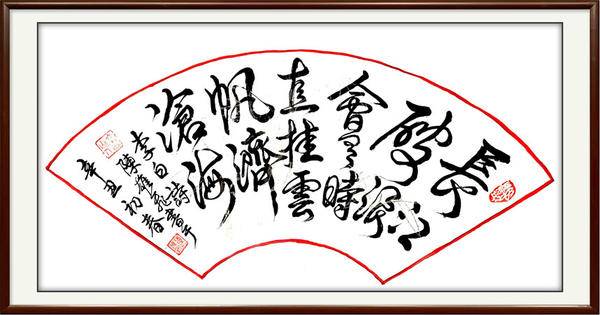 長風
破浪
會有時
直挂雲
帆濟
滄海
李白詩
陳雄飛書于
辛丑初春